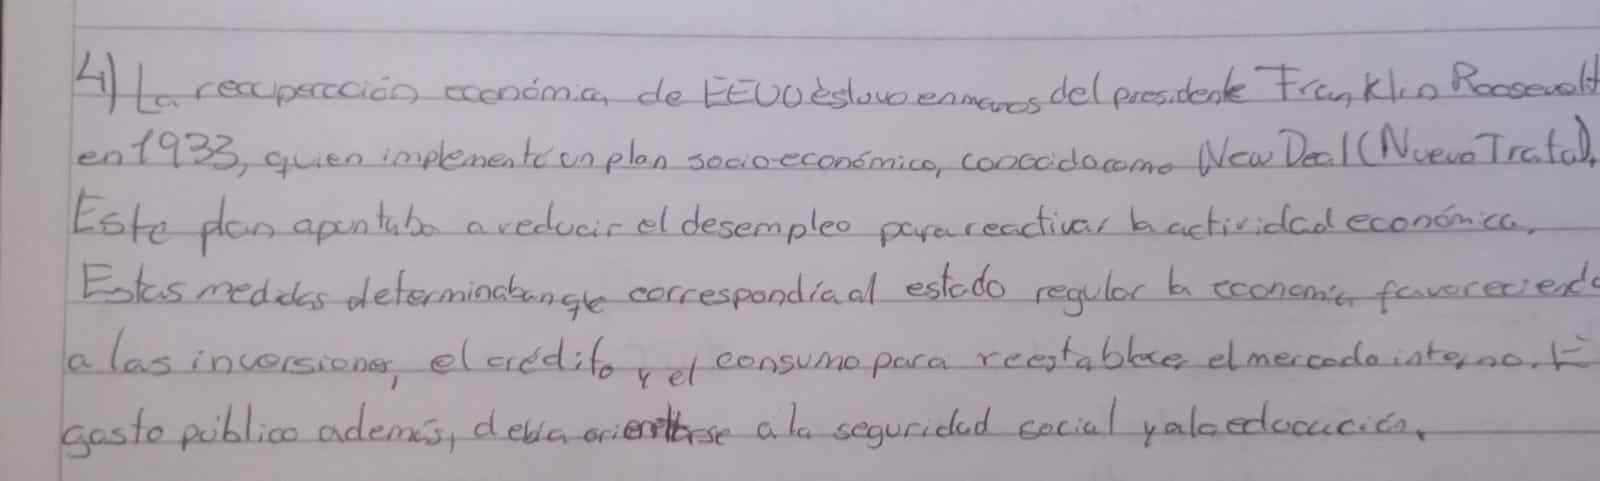 4) La recuperación económica de EEUU estuvo en manos del presidente Franklin Roosevelt
en 1933, quien implementó un plan socio-económico, conocido como New Deal (Nuevo Trato).
Este plan apuntaba a reducir el desempleo para reactivar la actividad económica.
Estas medidas determinaban que correspondía al estado regular la economía favoreciendo
a las inversiones, el crédito y el consumo para reestablecer el mercado interno. E
gasto público además, debía orientarse a la seguridad social y a la educación.